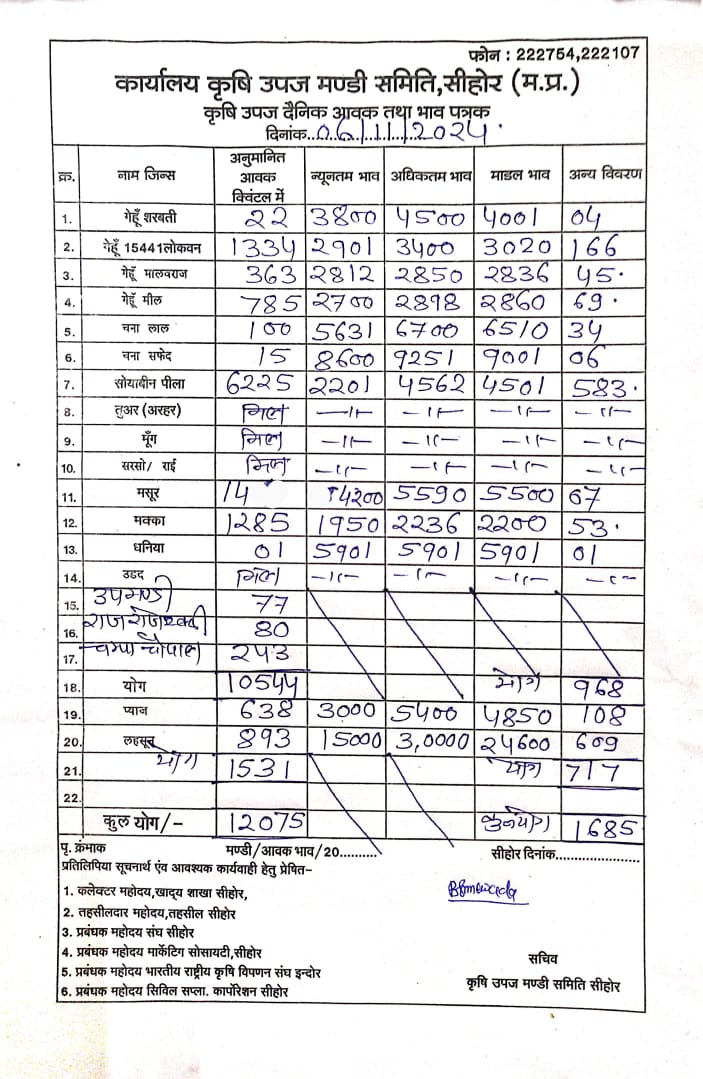 फोन : 222754,222107
कार्यालय कृषि उपज मण्डी समिति,सीहोर (म.प्र.)
कृषि उपज दैनिक आवक तथा भाव पत्रक
दिनांक..06/11/2024.
क्र. नाम जिन्स अनुमानित आवक क्विंटल में न्यूनतम भाव अधिकतम भाव माडल भाव अन्य विवरण
1. गेहूँ शरबती 22 3800 4500 4001 04
2. गेहूँ 15441लोकवन 1334 2901 3400 3020 166
3. गेहूँ मालवराज 363 2812 2850 2836 45.
4. गेहूँ मील 785 2700 2898 2860 69.
5. चना लाल 100 5631 6700 6510 34
6. चना सफेद 15 8600 9251 9001 06
7. सोयाबीन पीला 6225 2201 4562 4501 583.
8. तुअर (अरहर) निल -"- -"- -"- -"-
9. मूँग निल -"- -"- -"- -"-
10. सरसो/ राई निल -"- -"- -"- -"-
11. मसूर 14 4200 5590 5500 67
12. मक्का 1285 1950 2236 2200 53.
13. धनिया 01 5901 5901 5901 01
14. उडद निल -"- -"- -"- -"-
15. उपमण्डी 77
16. 80
17. 243
18. योग 10544 योग 968
19. प्याज 638 3000 5400 4850 108
20. लहसून 893 15000 3,0000 24600 609
21. योग 1531 योग 717
22.
कुल योग/- 12075 कुलयोग 1685
पृ. क्रंमाक मण्डी/आवक भाव/20.......... सीहोर दिनांक.....................
प्रतिलिपिया सूचनार्थ एंव आवश्यक कार्यवाही हेतु प्रेषित-
1. कलेक्टर महोदय,खाद्य शाखा सीहोर,
2. तहसीलदार महोदय,तहसील सीहोर
3. प्रबंधक महोदय संघ सीहोर
4. प्रबंधक महोदय मार्केटिग सोसायटी,सीहोर
5. प्रबंधक महोदय भारतीय राष्ट्रीय कृषि विपणन संघ इन्दोर
6. प्रबंधक महोदय सिविल सप्ला. कार्पोरेशन सीहोर
सचिव
कृषि उपज मण्डी समिति सीहोर